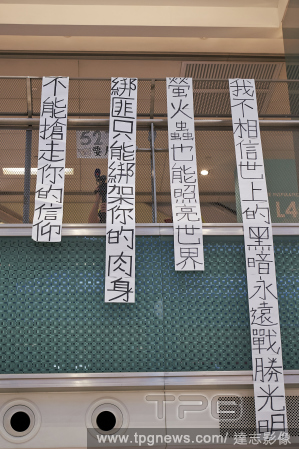 我不相信世上的黑暗永遠戰勝光明
螢火蟲也能照亮世界
綁匪只能綁架你的肉身
不能搶走你的信仰
52
L4
TPG
www.tpgnews.com/ 達志影像